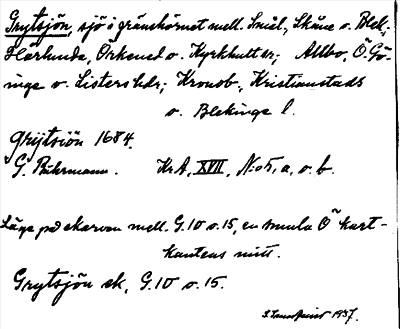 Grytsjön, sjö i gränshörnet mell. Smål., Skåne o. Blek.;
Härlunda, Örkened o. Kyrkhult sr; Allbo, Ö. Gö-
inge o. Listers hdr; Kronob., Kristianstads
o. Blekinge l.
Grytsiön 1684.
G. Buhrmann. KrA, XVII, N:o 5, a, o. b.
Läge på skarven mell. G.10 o. 15, en smula Ö kart-
kantens mitt.
Grytsjön ek. G.10 o. 15.
1937.